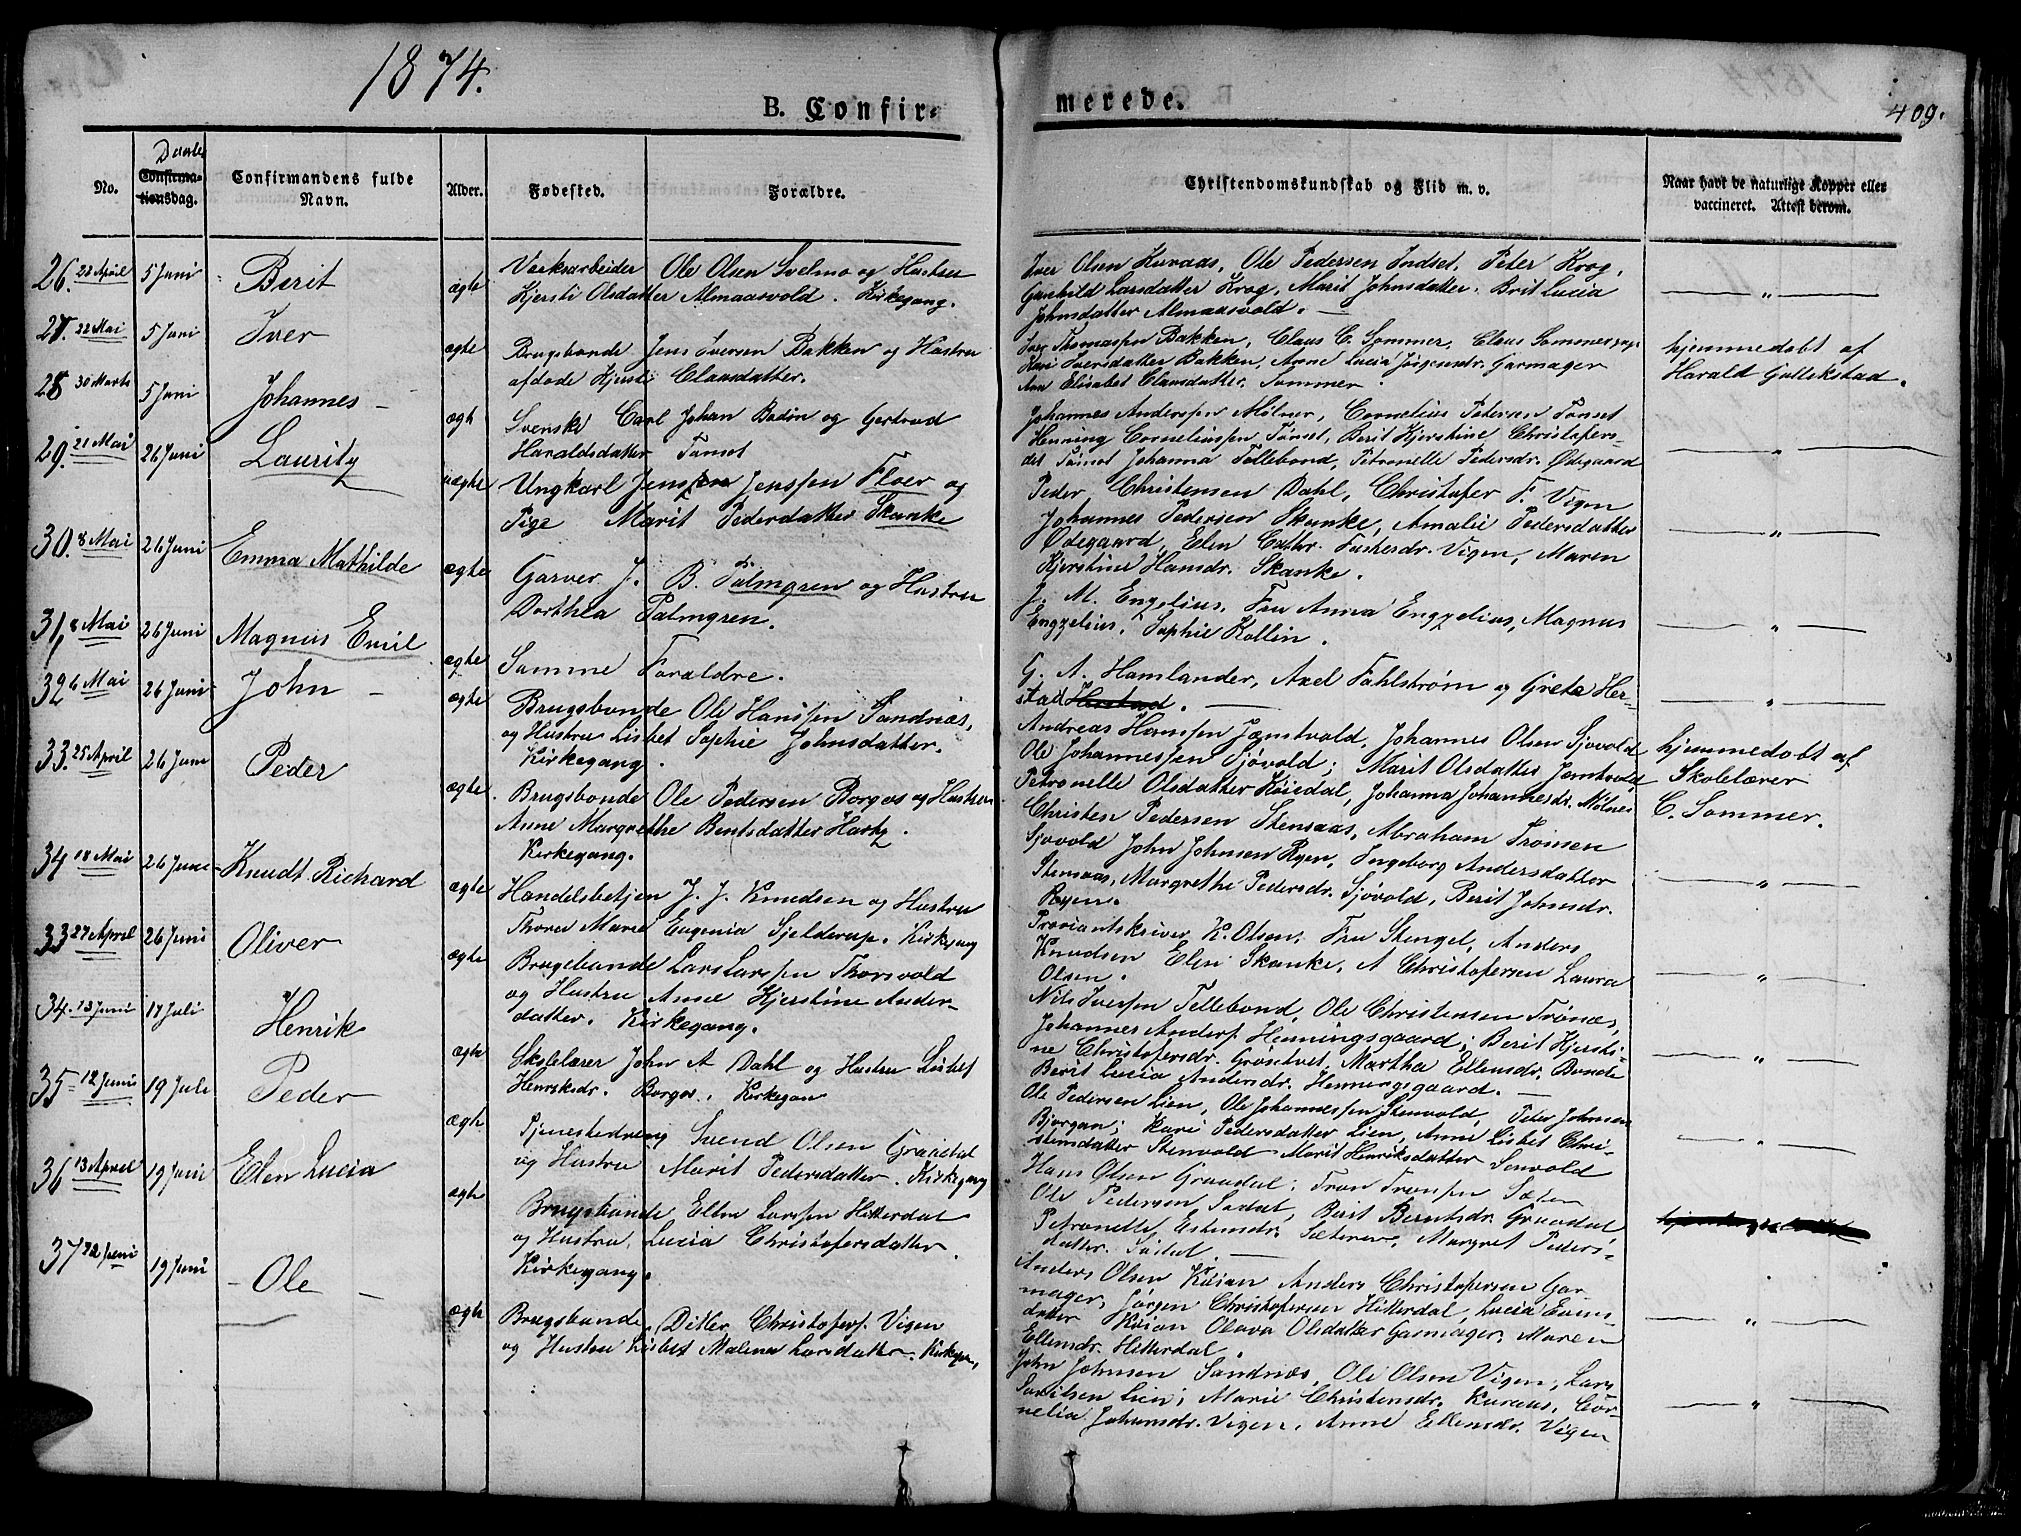 1874.
B. Confir-
merede.
409.
No.
Confirma-
tionsdag.
Confirmandens fulde
Navn.
Alder.
Fødested.
Forældre.
Christendomskundskab og Flid m. v.
Naar havt de naturlige Kopper eller
vaccineret. Attest derom.
26. 22 April 5 Juni Berit ægte
Værksarbeider Ole Olsen Svelmo og Hustru
Kjersti Olsdatter Almaasvold. Kirkegang.
Iver Olsen Kuraas, Ole Pedersen Indset, Peter Krog,
Gunhild Larsdatter Krog, Marit Johnsdatter, Brit Lucia
Johnsdatter Almaasvold. —
— " —
27. 22 Mai 5 Juni Iver ægte
Brugsbonde Jens Iversen Bakken og Hustru
afdøde Kjersti Clausdatter.
Iver Thomasen Bakken, Claus C. Sommer, Claus Sommer
Kari Iversdatter Bakken, Anne Lucia Jørgensdr. Garmager
Ane Elisabet Clausdatter Sommer.
hjemmedøbt af
Harald Gullikstad.
28 30 Marts 5 Juni Johannes — ægte
Svenske Carl Johan Bodin og Gertrud
Haraldsdatter Tamot
Johannes Andersen Mølner, Cornelius Petersen Tønset
Henning Corneliussen Tønset, Berit Kjerstine Christofers-
dat Tønset Johanna Tellebond, Petronelle Pedersdr. Ødegaard
— " —
29. 21 Mai 26 Juni Lauritz uægte
Ungkarl Jens Jenssen Floer og
Pige Marit Pedersdatter Skanke
Peder Christensen Dahl, Christofer F. Vigen
Johannes Pedersen Skanke, Amalie Pedersdatter
Ødegaard, Elen Cathr. Fastersdr. Vigen, Maren
Kjerstine Hansdr. Skanke.
— " —
30. 8 Mai 26 Juni Emma Mathilde ægte
Garver J. B. Palmgren og Hustru
Dorthea Palmgren.
J. M. Engelius, Fru Anna Engzelius, Magnus
Engzelius, Sophie Kollin.
— " —
31, 8 Mai 26 Juni Magnus Emil ægte
Samme Foraldre.
G. A. Hamlander, Axel Fahlstrøm og Grete Her-
stad. —
— " —
32 6 Mai 26 Juni John — ægte
Brugsbonde Ole Hanssen Sandnæs,
og Hustru Lisbet Sophie Johnsdatter.
Kirkegang.
Andreas Hanssen Jæmtvold, Johannes Olsen Sjøvold
Ole Johannessen Sjøvold; Marit Olsdatter Jæmtvold,
Petronelle Olsdatter Kuiedal, Johanna Johannesdr. Mølner
hjemmedøbt af
Skolelærer
C. Sommer.
33. 25 April 26 Juni Peder ægte
Brugsbonde Ole Pedersen Borgos og Hustru
Anne Margrethe Bentsdatter Hartz.
Kirkegang.
Christen Pedersen Stensaas, Abraham Trønsen
Sjøvold John Johnsen Ryen, Ingeborg Andersdatter
Stensaas, Margrethe Pedersdr. Sjøvold, Berit Johnsdr.
Ryen.
— " —
34 18 Mai 26 Juni Knudt Richard ægte
Handelsbetjen J. J. Knudsen og Hustru
Thora Marie Eugenia Sjelderup. Kirkegang
Proviantskriver K. Olsen, Fru Stengel, Anders
Knudsen Elen Skanke, A Christofersen Laura
Olsen.
— " —
33 27 April 26 Juni Oliver ægte
Brugsbonde Lars Larssen Thorsvold
og Hustru Anne Kjerstine Ander-
datter. Kirkegang.
Nils Iversen Tellebond, Ole Christensen Trønæs,
Johannes Anders. Henningsgaard; Berit Kjersti-
ne Christofersdr. Grøsetvet, Martha Ellensdr. Bonde
Berit Lucia Andersdr. Henningsgaard. —
— " —
34. 13 Juni 17 Juli Henrik ægte
Skolelærer John A Dahl og Hustru Lisbet
Henriksdr. Borgos, Kirkegan
Ole Pedersen Lien, Ole Johannessen Stenvold, Peter Johnsen
Bjørgan; Kari Pedersdatter Lien, Anne Lisbet Chri-
stensdatter Stenvold Marit Henriksdatter Senvold
— " —
35 12 Juni 19 Juli Peder ægte
Tjenestedreng Svend Olsen Graadal
og Hustru Marit Pedersdatter. Kirkegang
Hans Olsen Graadal; Tron Tronsen Sæter
Ole Pedersen Sødal, Berit Berntsdr. Graadal
Petronelle Estensdr. Sæteren, Margret Peders-
datter Sødal. —
36 13 April 19 Juni Elen Lucia ægte
Brugsbonde Ellen Larssen Hitterdal
og Hustru Lucia Christofersdatter.
Kirkegang.
Anders Olsen Kuian Anders Christofersen Gar-
mager, Jørgen Christofersen Hitterdal, Lucia Evens-
datter Kuian Olava Olsdatter Garmager, Maren
Ellensdr. Hitterdal.
— " —
37 22 Juni 19 Juni — Ole — ægte
Brugsbonde Ditler Christofers. Vigen
og Hustru Lisbet Malena Larsdatter. Kirkegan,
John Johnsen Sandnæs, Ole Olsen Vigen, Lars
Lien; Marie Christensdr. Kuraas, Cor-
nelia Johansdr. Vigen, Anne Ellensdr. Vigen
— " —